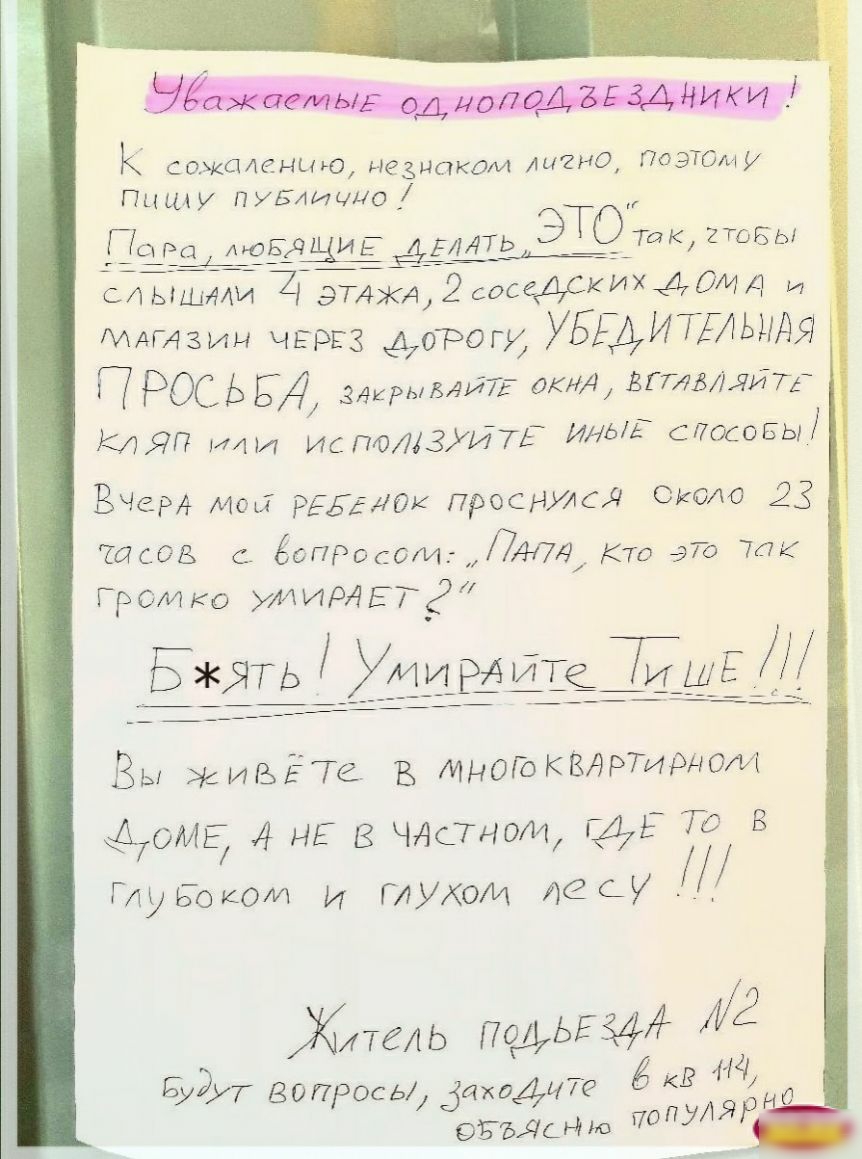 Уважаемые одноподъездники!
К сожалению, незнаком лично, поэтому
пишу публично!
Пара, любящие делать „ЭТО“ так, чтобы
слышали 4 этажа, 2 соседских дома и
магазин через дорогу, УБЕДИТЕЛЬНАЯ
ПРОСЬБА, закрывайте окна, вставляйте
кляп или используйте иные способы!
Вчера мой ребенок проснулся около 23
часов с вопросом: „Папа, кто это так
громко умирает?“
Б*ять! Умирайте Тише!!!
Вы живёте в многоквартирном
доме, а не в частном, где то в
глубоком и глухом лесу!!!
Житель подьезда №2
Будут вопросы, заходите в кв 114,
объясню популярно